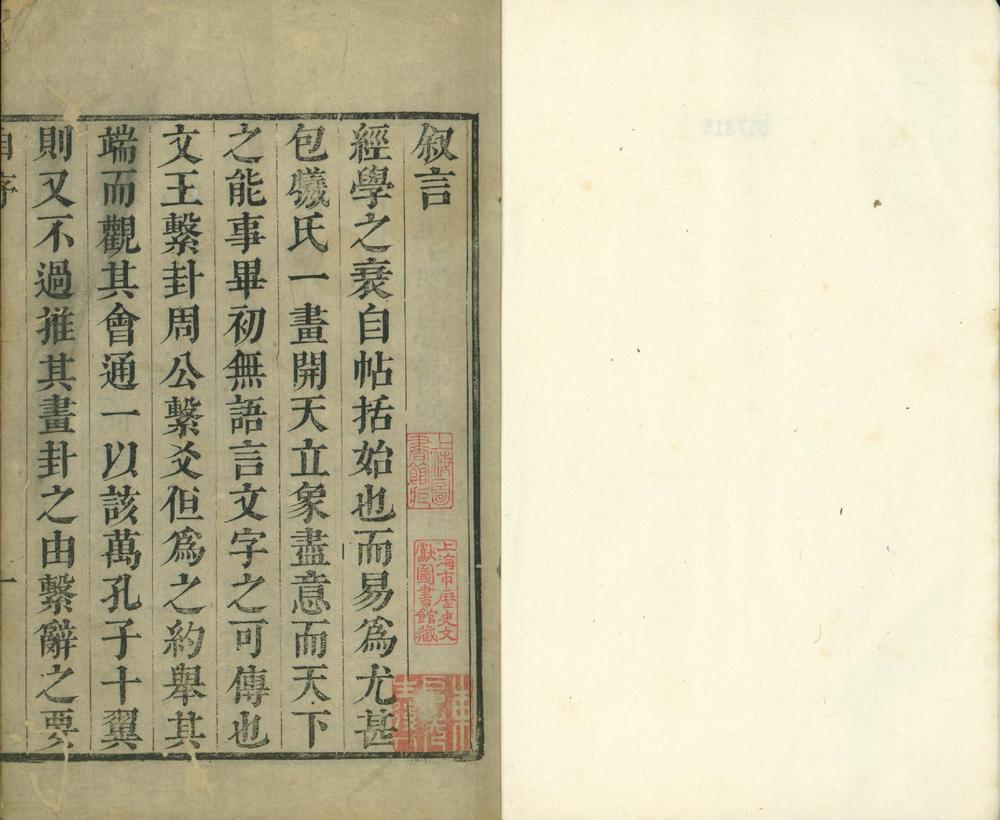 叙言
經學之衰自帖括始也而易爲尤甚
包犧氏一畫開天立象盡意而天下
之能事畢初無語言文字之可傳也
文王繫卦周公繫爻但爲之約舉其
端而觀其會通一以該萬孔子十翼
則又不過推其畫卦之由繫辭之要
自序
一
上海圖
書館藏
上海市歷史文
獻圖書館藏